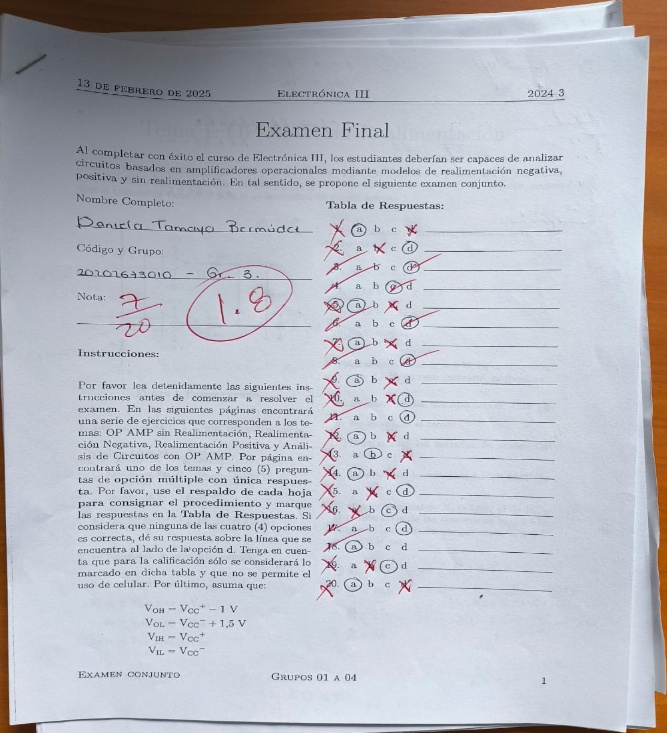 13 DE FEBRERO DE 2025 ELECTRÓNICA III 2024-3
Examen Final
Al completar con éxito el curso de Electrónica III, los estudiantes deberían ser capaces de analizar
circuitos basados en amplificadores operacionales mediante modelos de realimentación negativa,
positiva y sin realimentación. En tal sentido, se propone el siguiente examen conjunto.
Nombre Completo:
Daniela Tamayo Bermúdez
Código y Grupo:
20202673010 - Gr. 3.
Nota: 7/20 1.8
Instrucciones:
Por favor lea detenidamente las siguientes ins-
trucciones antes de comenzar a resolver el
examen. En las siguientes páginas encontrará
una serie de ejercicios que corresponden a los te-
mas: OP AMP sin Realimentación, Realimenta-
ción Negativa, Realimentación Positiva y Análi-
sis de Circuitos con OP AMP. Por página en-
contrará uno de los temas y cinco (5) pregun-
tas de opción múltiple con única respues-
ta. Por favor, use el respaldo de cada hoja
para consignar el procedimiento y marque
las respuestas en la Tabla de Respuestas. Si
considera que ninguna de las cuatro (4) opciones
es correcta, dé su respuesta sobre la línea que se
encuentra al lado de la opción d. Tenga en cuen-
ta que para la calificación sólo se considerará lo
marcado en dicha tabla y que no se permite el
uso de celular. Por último, asuma que:
VOH = VCC+ − 1 V
VOL = VCC− + 1,5 V
VIH = VCC+
VIL = VCC−
Tabla de Respuestas:
1. a b c d
2. a b c d
3. a b c d
4. a b c d
5. a b c d
6. a b c d
7. a b c d
8. a b c d
9. a b c d
10. a b c d
11. a b c d
12. a b c d
13. a b c d
14. a b c d
15. a b c d
16. a b c d
17. a b c d
18. a b c d
19. a b c d
20. a b c d
EXAMEN CONJUNTO GRUPOS 01 A 04 1